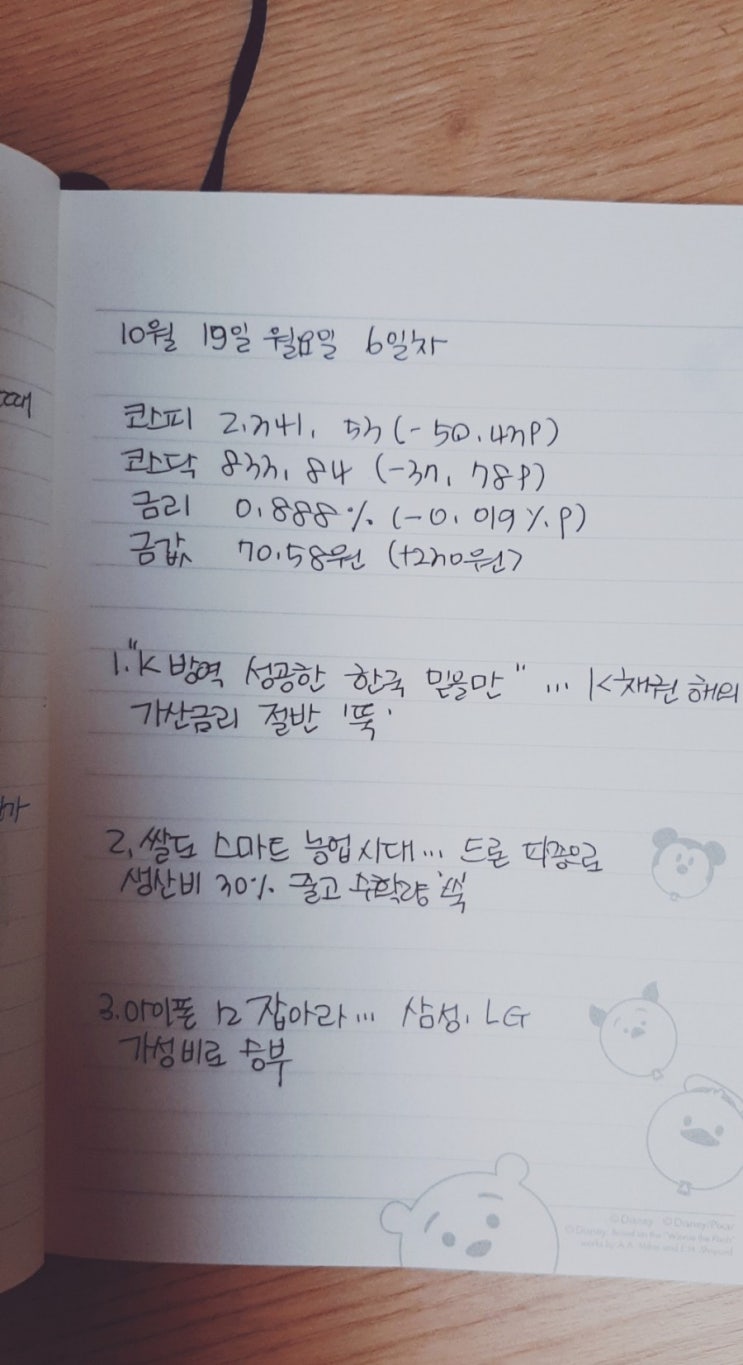 10월 19일 월요일 6일차
코스피 2.341. 53 (-50.43P)
코스닥 833. 84 (-37. 78P)
금리 0.888% (-0.019%.P)
금값 70.58원 (+270원)
1."K방역 성공한 한국 믿을만" ... K채권 해외
가산금리 절반 '뚝'
2, 쌀도 스마트 농업시대... 드론 파종으로
생산비 30% 줄고 수확량 '쑥
3.아이폰 12 잡아라... 삼성. LG
가성비로 승부
©Disney ©Disney/Pixar
©Disney. Based on the "Winnie the Pooh"
works by A.A. Milne and E.H. Shepard.